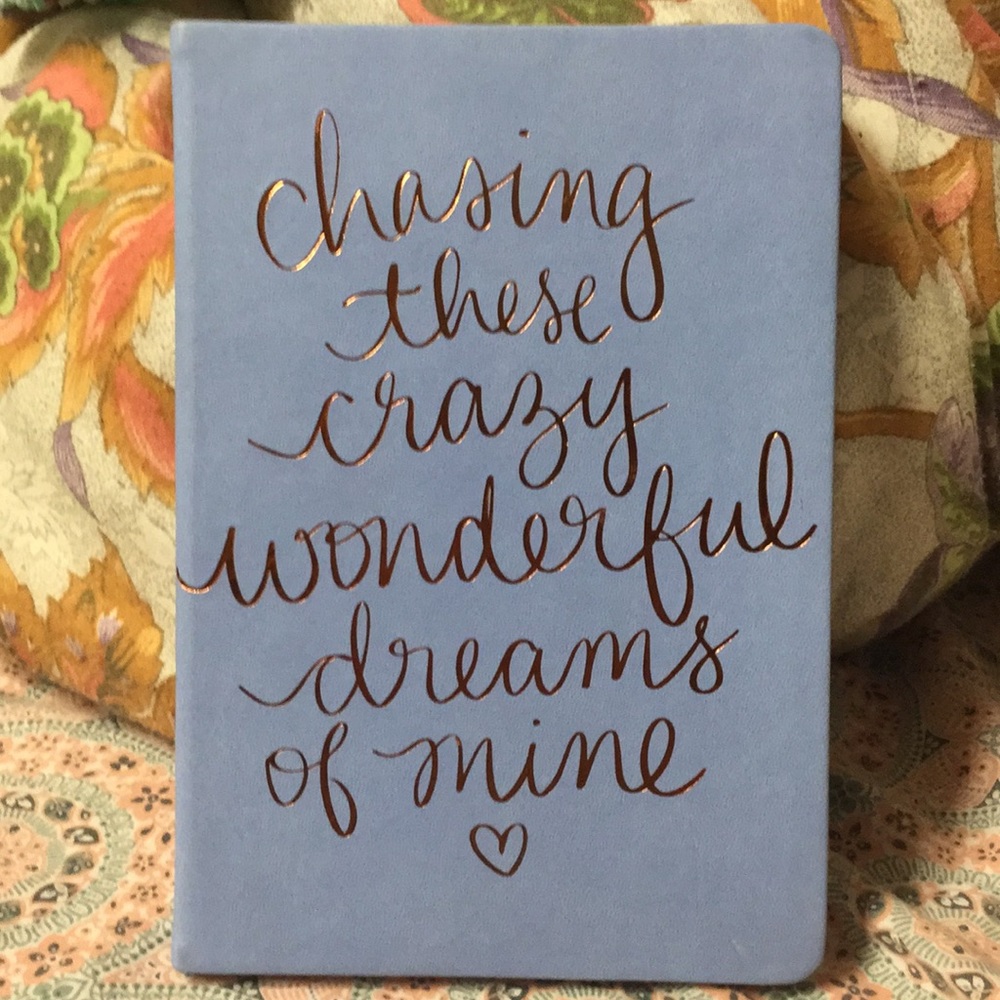 chasing
these
crazy
wonderful
dreams
of mine